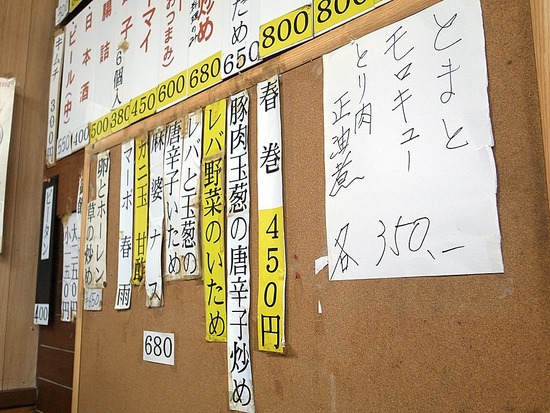 とまと
モロキュー
とり肉
正油煮
各 350.-
春巻 450円
豚肉玉葱の唐辛子炒め
レバ野菜のいため
レバと玉葱の
唐辛子いため
麻婆ナス
カニ玉 甘酢
マーボ春雨
卵とホーレン
草の炒め
680
ピータン
400
キムチ 300
ビール(中) 550
日本酒 400
500
6個入 380
450
おつまみ 600
680
ため 650
800
800